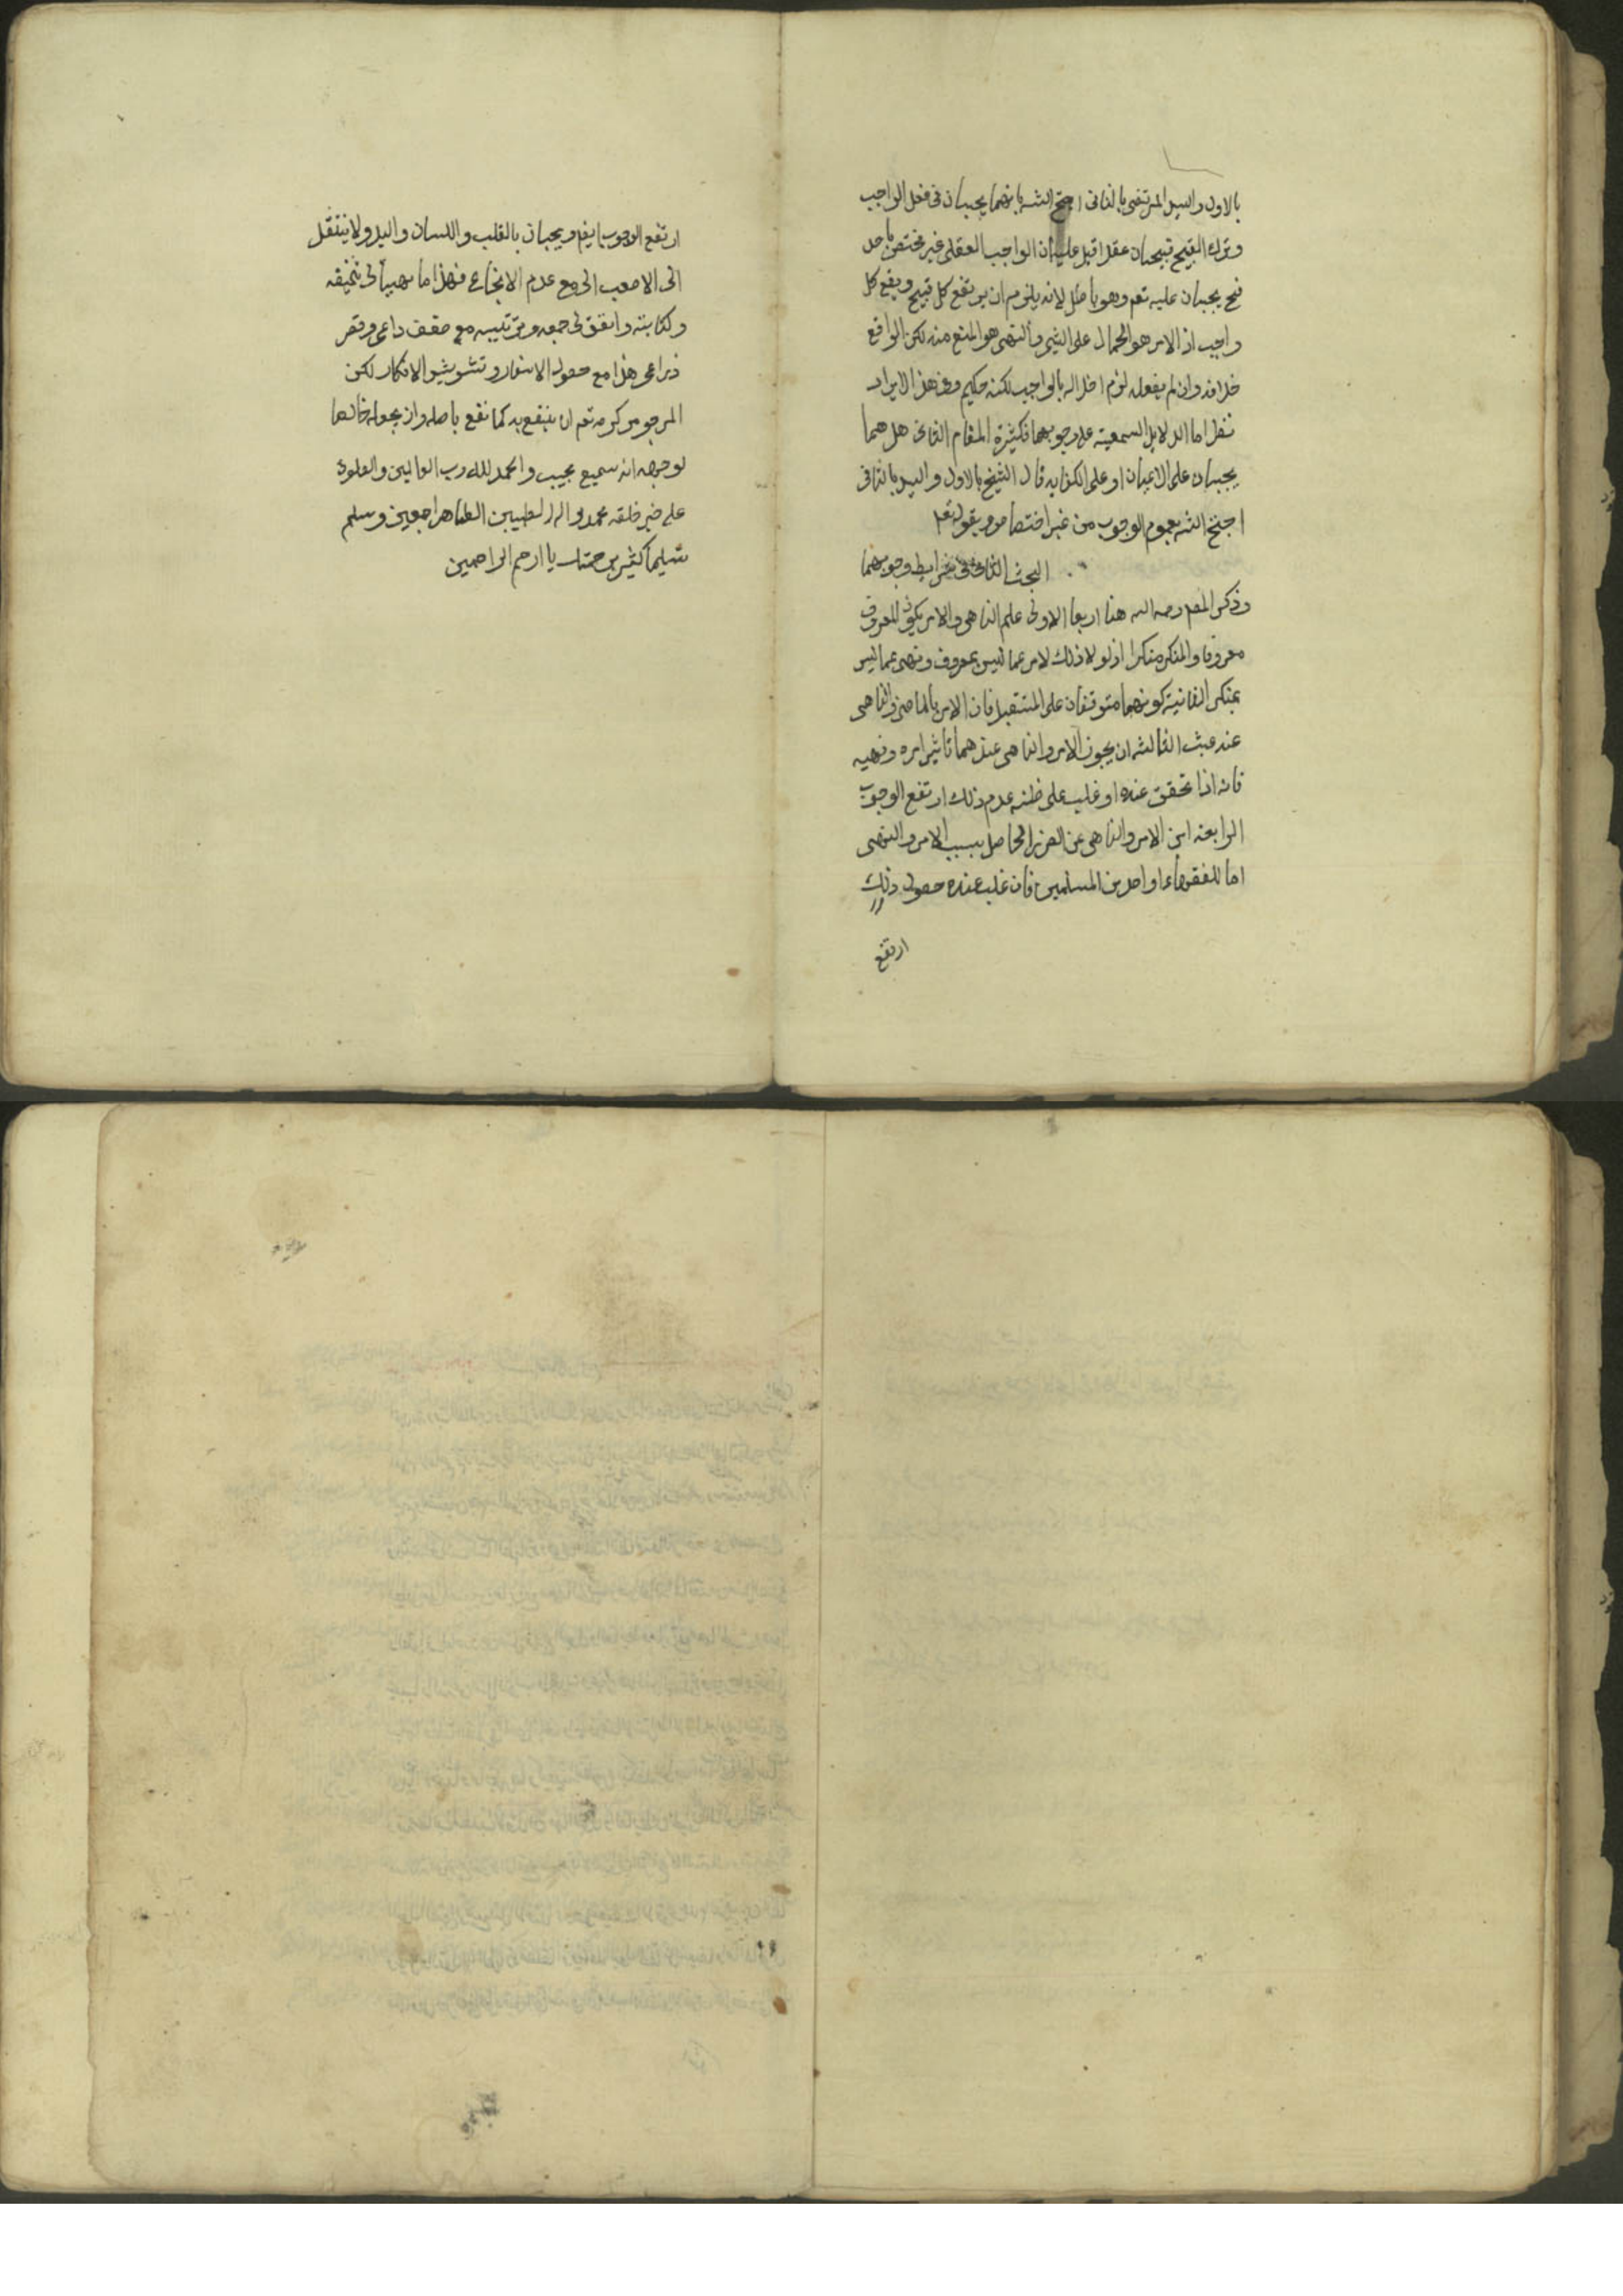 بالاول والسيد المرتضى بالثاني احتج الشيخ بانهما يجبان في فعل الواجب
وترك القبيح قبيحان عقلا قيل عليه ان الواجب العقلي غير مختص باحد
فح يجبان عليه تعم وهو باطل لانه يلزم ان يرتفع كل قبيح ويقع كل
واجب اذ الامر هو الحمل على الشيء والنهى هو المنع منه لكن الواقع
خلافه وان لم يفعله لزم اخلاله بالواجب لكنه حكيم وفي هذا الايراد
نظر اما الدلايل السمعية على وجوبهما فكثيرة المقام الثاني هل هما
يجبان على الاعيان او على الكفاية قال الشيخ بالاول والسيد بالثاني
احتج الشيخ بعموم الوجوب من غير اختصاص بقوله تعم
البحث الثاني في شرايط وجوبهما
وذكر المص رحمه الله هنا اربعا الاولى علم الناهى والامر بكون المعروف
معروفا والمنكر منكرا اذ لولا ذلك لامر بما ليس بمعروف ونهى عما ليس
بمنكر الثانية كونهما متوقفان على المستقبل فان الامر بالماضى والناهى
عنه عبث الثالثة ان يجوز الامر والناهى عندهما تاثير امره ونهيه
فانه اذا تحقق عنده او غلب على ظنه عدم ذلك ارتفع الوجوب
الرابعة امن الامر والناهى عن الضرر الحاصل بسبب الامر والنهى
اما للفقهاء او احد من المسلمين فان غلب عنده حصول ذلك
ارتفع
ارتفع الوجوب ايض ويجبان بالقلب واللسان واليد ولا ينتقل
الى الاصعب الى مع عدم الانجاع فهذا ما تهيأ لى تنميقه
وكتابته واتفق لى جمعه وترتيبه مع ضعف داعى وقصر
ذراعى هذا مع حصول الاسفار وتشويش الافكار لكن
المرجو من كرمه تعم ان ينفع به كما نفع باصله وان يجعله خالصا
لوجهه انه سميع مجيب والحمد لله رب العالمين والصلوة
على خير خلقه محمد واله الطيبين الطاهر اجمعين وسلم
تسليما كثير برحمتك يا ارحم الراحمين